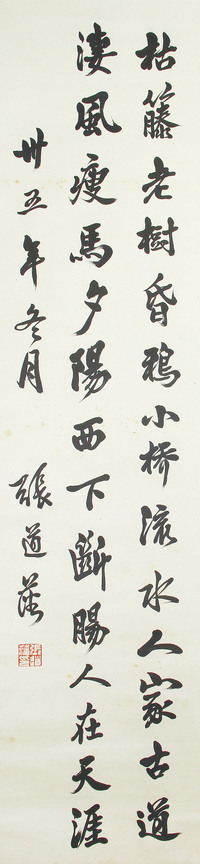 枯籐老樹昏鴉小橋流水人家古道
淒風瘦馬夕陽西下斷腸人在天涯
卅五年冬月 張道藩